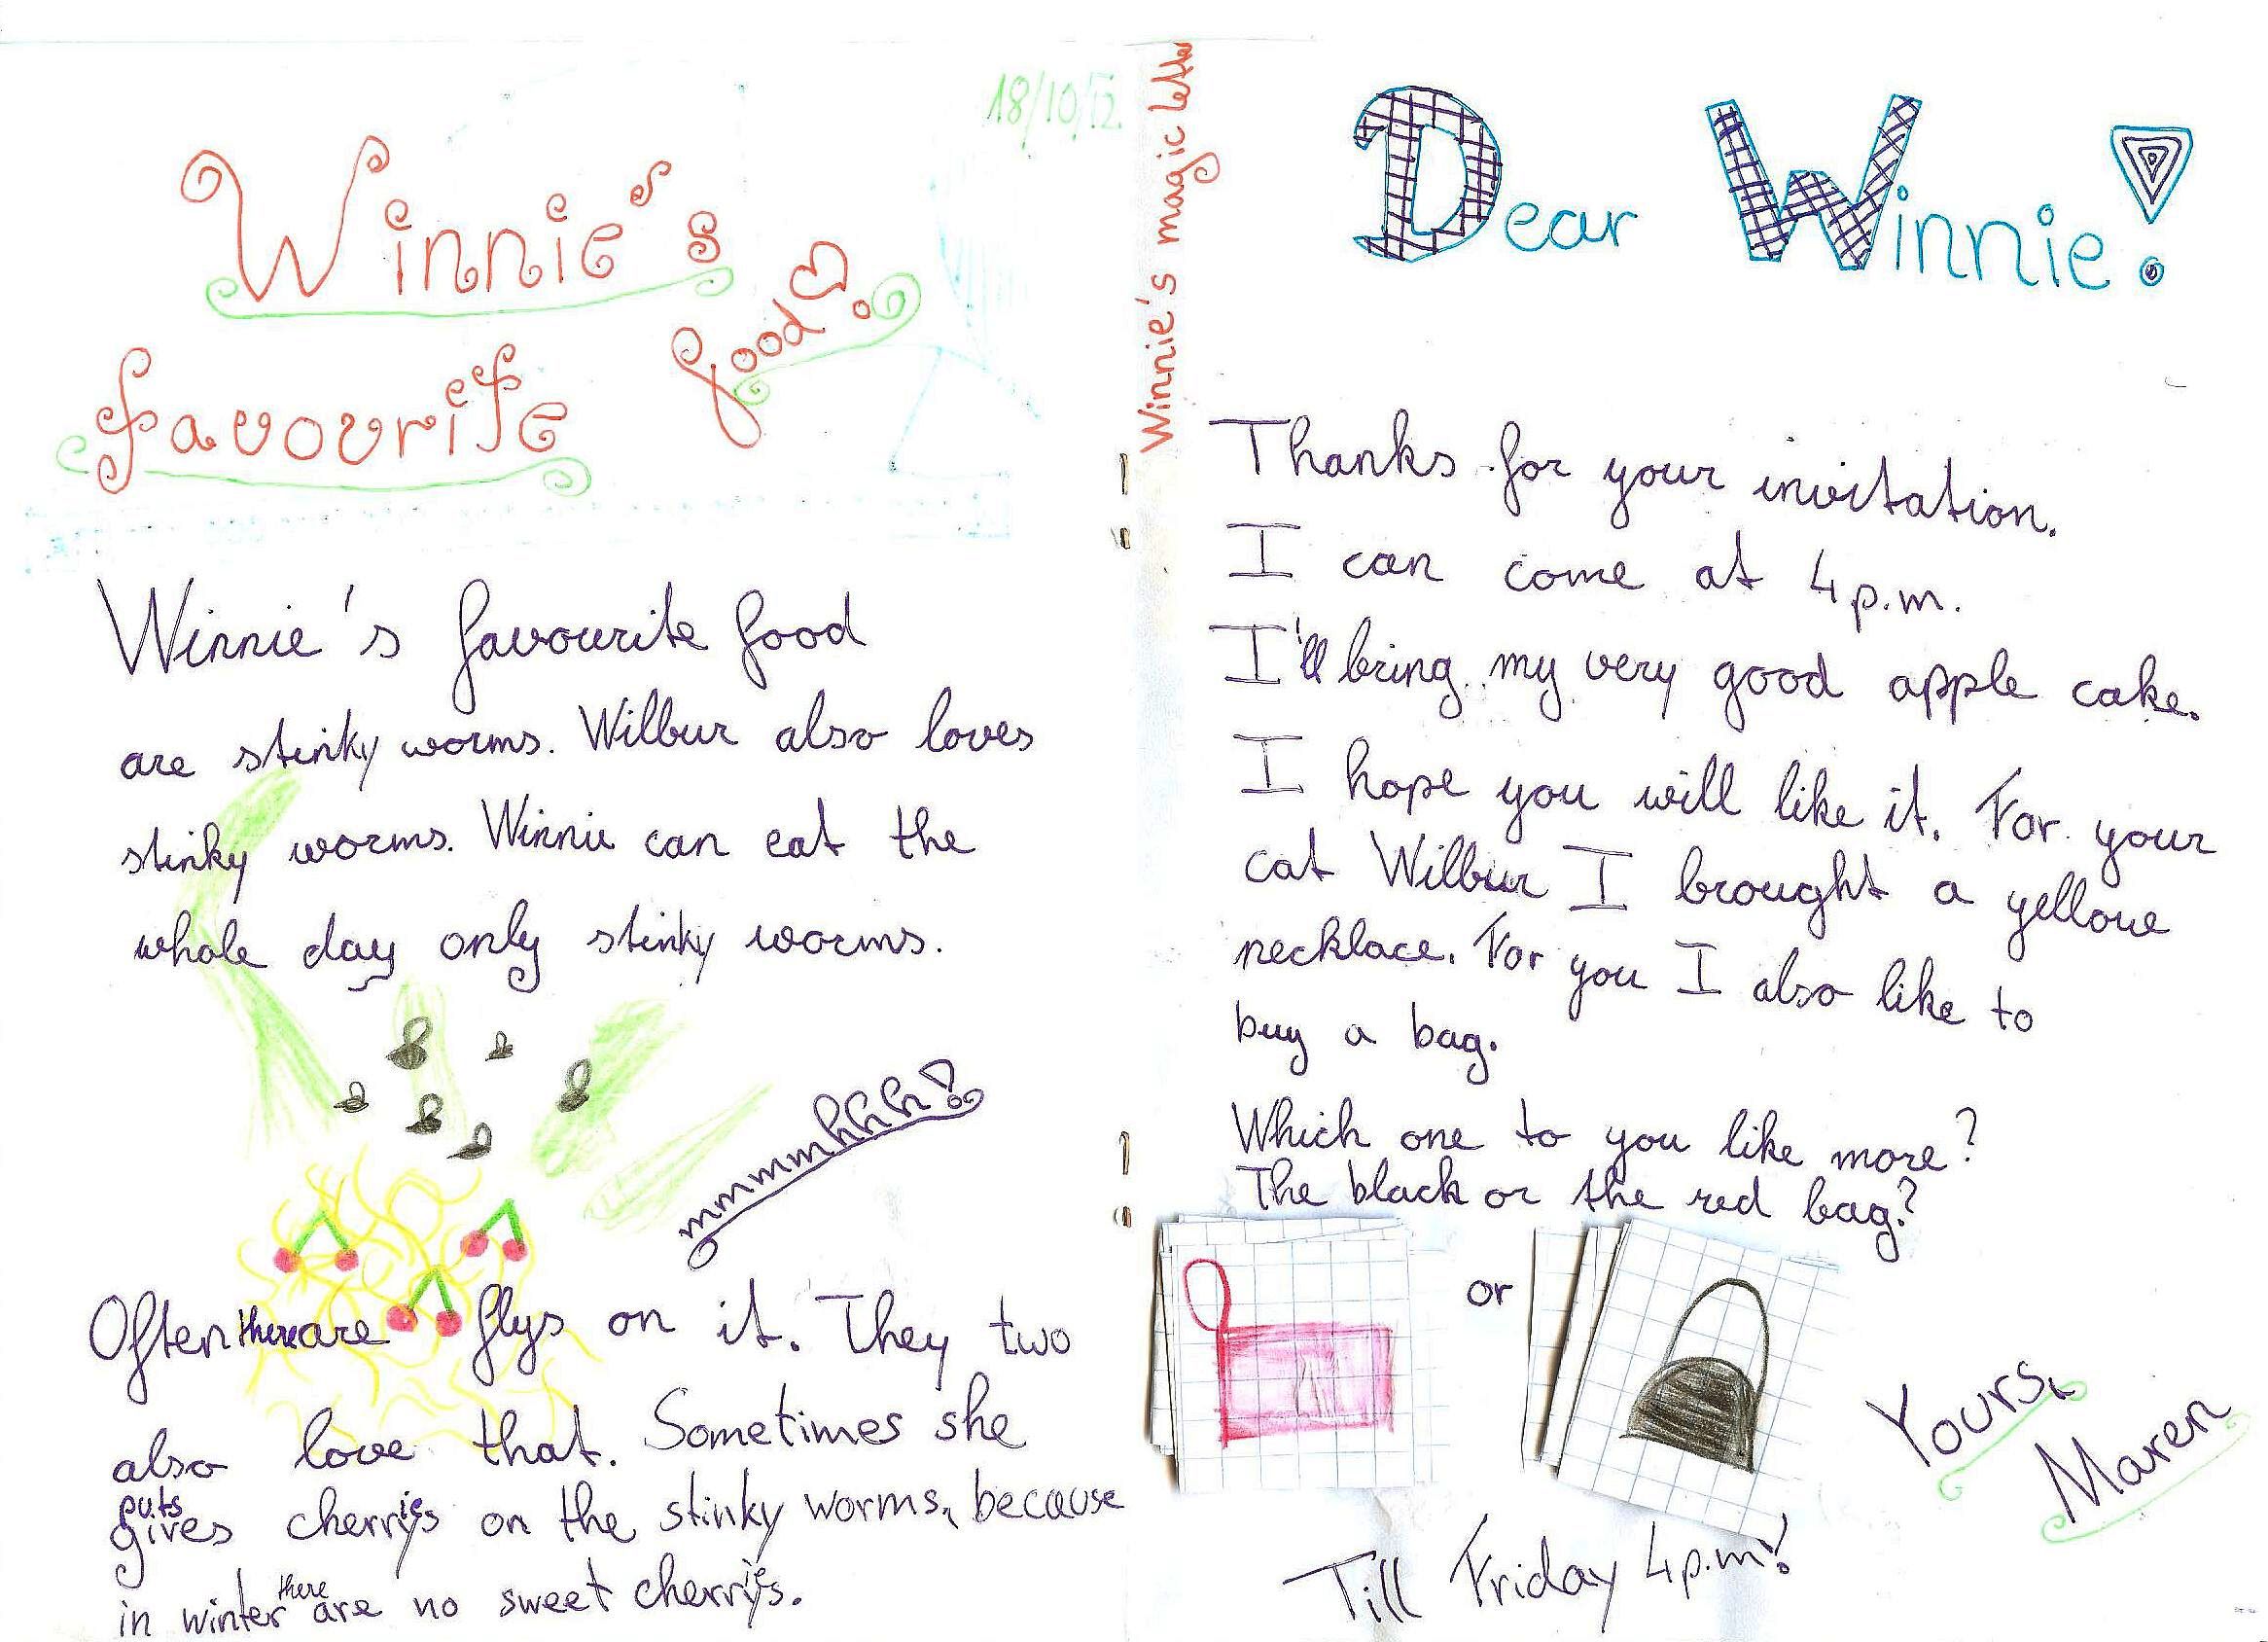 18/10/12.
Winnie's
favourite food!
Winnie's favourite food
are stinky worms. Wilbur also loves
stinky worms. Winnie can eat the
whole day only stinky worms.
mmmmhhhh!
Often there are flys on it. They two
also love that. Sometimes she
puts
gives cherrys on the stinky worms, because
ie
in winter there are no sweet cherrys.
ie
Winnie's magic letter
Dear Winnie!
Thanks for your invitation.
I can come at 4 p.m.
I'll bring my very good apple cake.
I hope you will like it. For your
cat Wilbur I brought a yellow
necklace. For you I also like to
buy a bag.
Which one to you like more?
The black or the red bag?
or
Yours,
Maren
Till Friday 4 p.m!